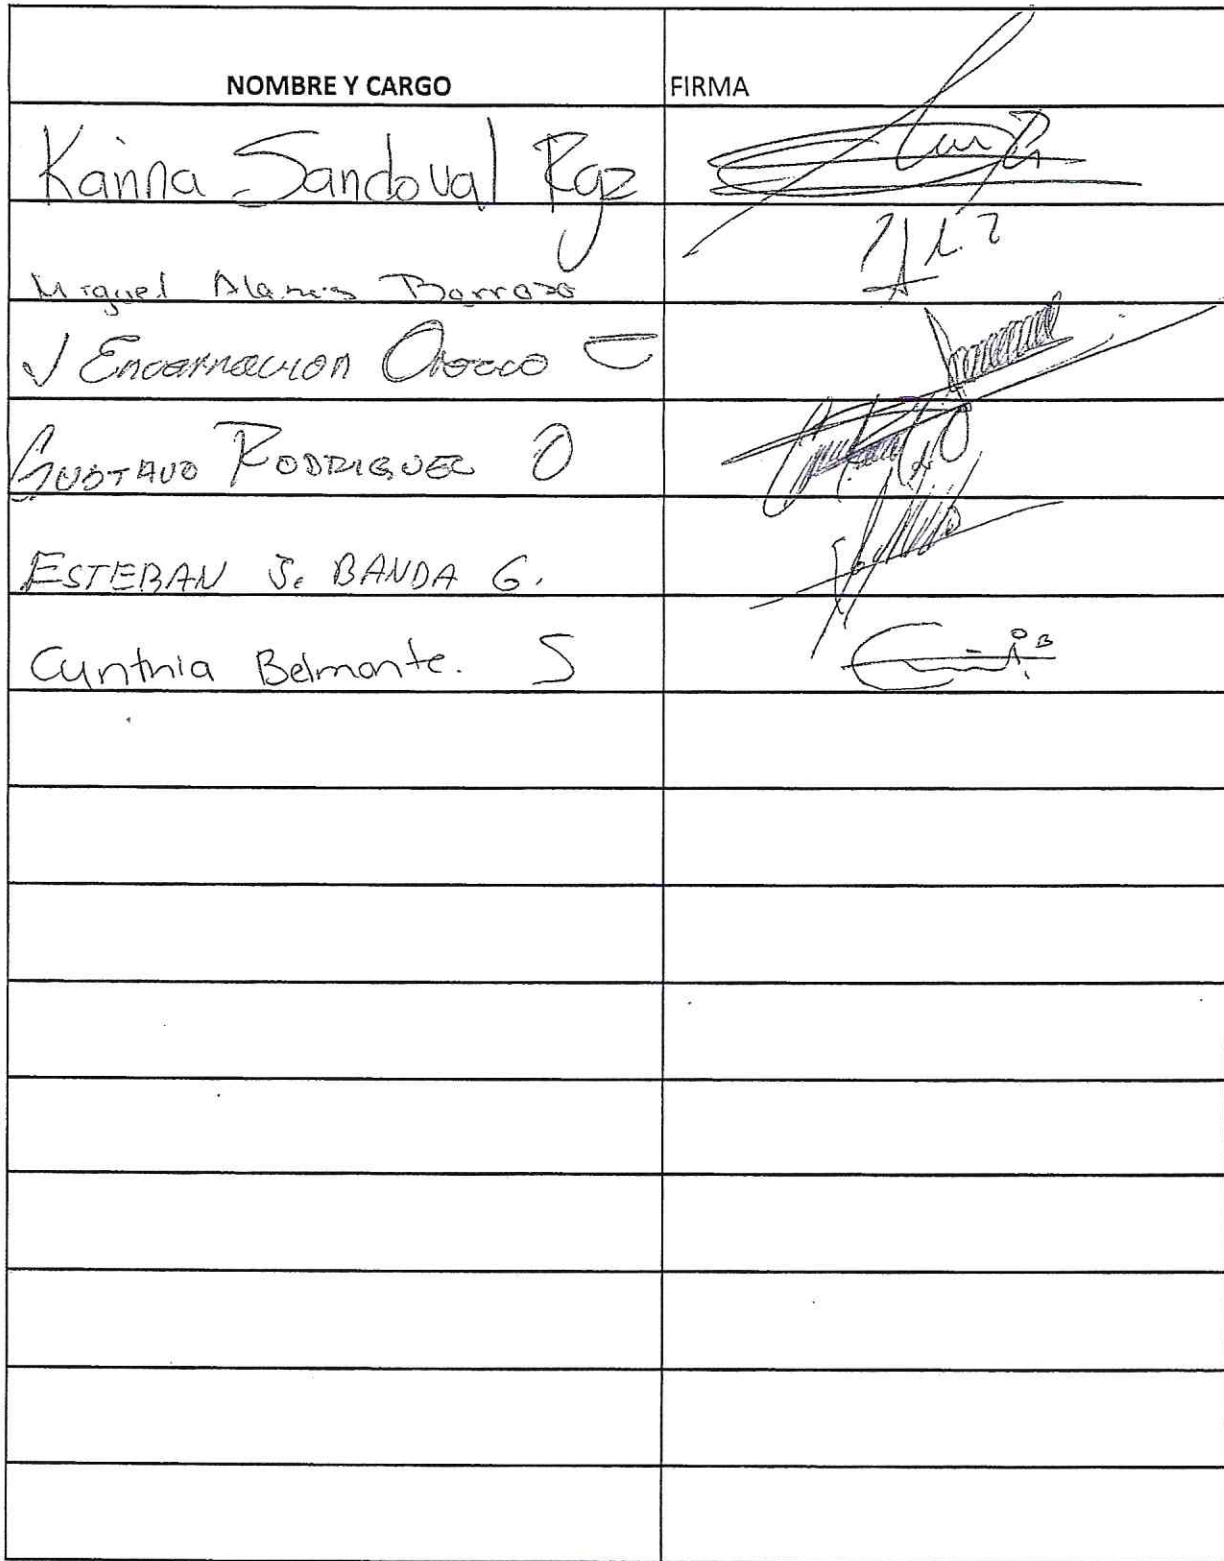 NOMBRE Y CARGO FIRMA
Karina Sandoval Rgz
Miguel Alanis Barroso
J Encarnacion Orozco C
GUSTAVO RODRIGUEZ O
ESTEBAN J. BANDA G.
Cynthia Belmonte. S